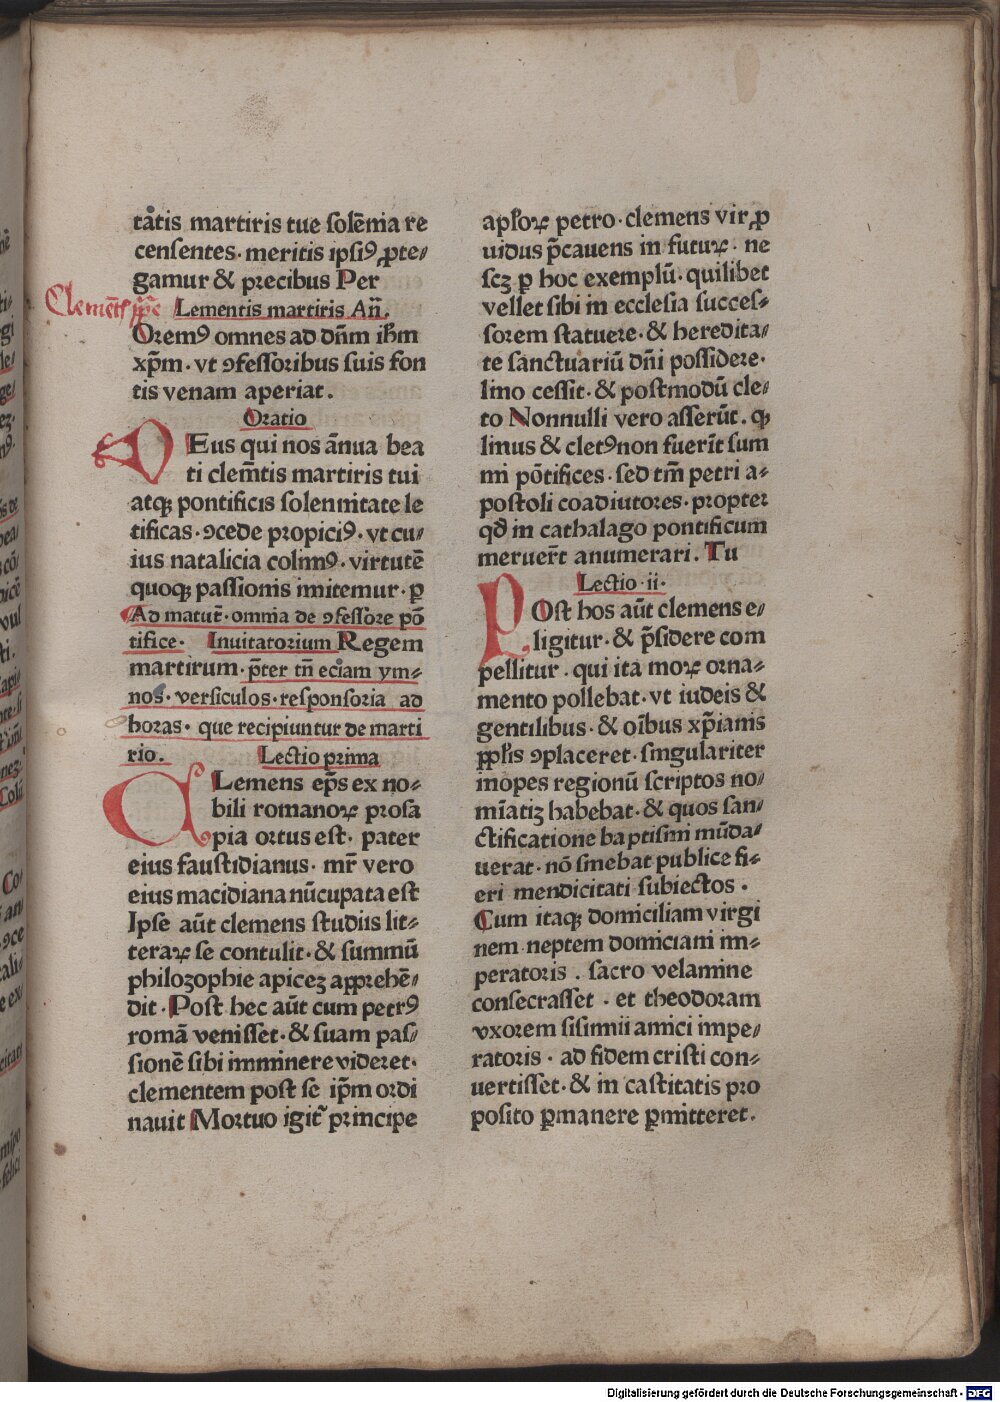 tatis martiris tue solēnia re
censentes. meritis ipsiꝰ ꝓte⸗
gamur & precibus Per
Lementis martiris An̄.
Oremꝰ omnes ad dn̄m ih̄m
xp̄m. vt ꝯfessoribus suis fon
tis venam aperiat.
Oratio
DEus qui nos ānua bea
ti clem̄tis martiris tui
atqꝫ pontificis solennitate le
tificas. ꝯcede propiciꝰ. vt cu⸗
ius natalicia colimꝰ. virtutē
quoqꝫ passionis imitemur. ꝑ
Ad matut̄. omnia de ꝯfessore pō
tifice. Inuitatorium Regem
martirum. p̄ter tn̄ eciam ym⸗
nos. versiculos. responsoria ad
horas. que recipiuntur de marti
rio. Lectio prima
CLemens ep̄s ex no⸗
bili romanoꝝ prosa
pia ortus est. pater
eius faustidianus. mr̄ vero
eius macidiana nūcupata est
Ipse aūt clemens studiis lit⸗
teraꝝ se contulit. & summū
philozophie apicez apprehē⸗
dit. Post hec aūt cum petrꝰ
romā venisset. & suam pas⸗
sionē sibi imminere videret.
clementem post se ip̄m ordi
nauit Mortuo igit᷑ principe
apl̄oꝝ petro. clemens vir ꝓ
uidus p̄cauens in futuꝝ. ne
scꝫ ꝑ hoc exemplū. quilibet
vellet sibi in ecclesia succes⸗
sorem statuere. & heredita⸗
te sanctuariū dn̄i possidere.
lino cessit. & postmodū cle⸗
to Nonnulli vero asserūt. ꝙ
linus & cletꝰ non fuerīt sum
mi pōtifices. sed tm̄ petri a⸗
postoli coadiutores. propter
qd̄ in cathalago pontificum
meruer̄t anumerari. Tu
Lectio ii.
POst hos aūt clemens e⸗
ligitur. & p̄sidere com
pellitur. qui ita moꝝ orna⸗
mento pollebat. vt iudeis &
gentilibus. & oībus xp̄ianis
ppl̄is ꝯplaceret. singulariter
inopes regionū scriptos no⸗
mīatiz habebat. & quos san⸗
ctificatione baptismi mūda⸗
uerat. nō sinebat publice fi⸗
eri mendicitati subiectos.
Cum itaqꝫ domiciliam virgi
nem neptem domiciani im⸗
peratoris. sacro velamine
consecrasset. et theodoram
vxorem sisimii amici impe⸗
ratoris. ad fidem cristi con⸗
uertisset. & in castitatis pro
posito ꝑmanere ꝑmitteret.
Digitalisierung gefördert durch die Deutsche Forschungsgemeinschaft - DFG